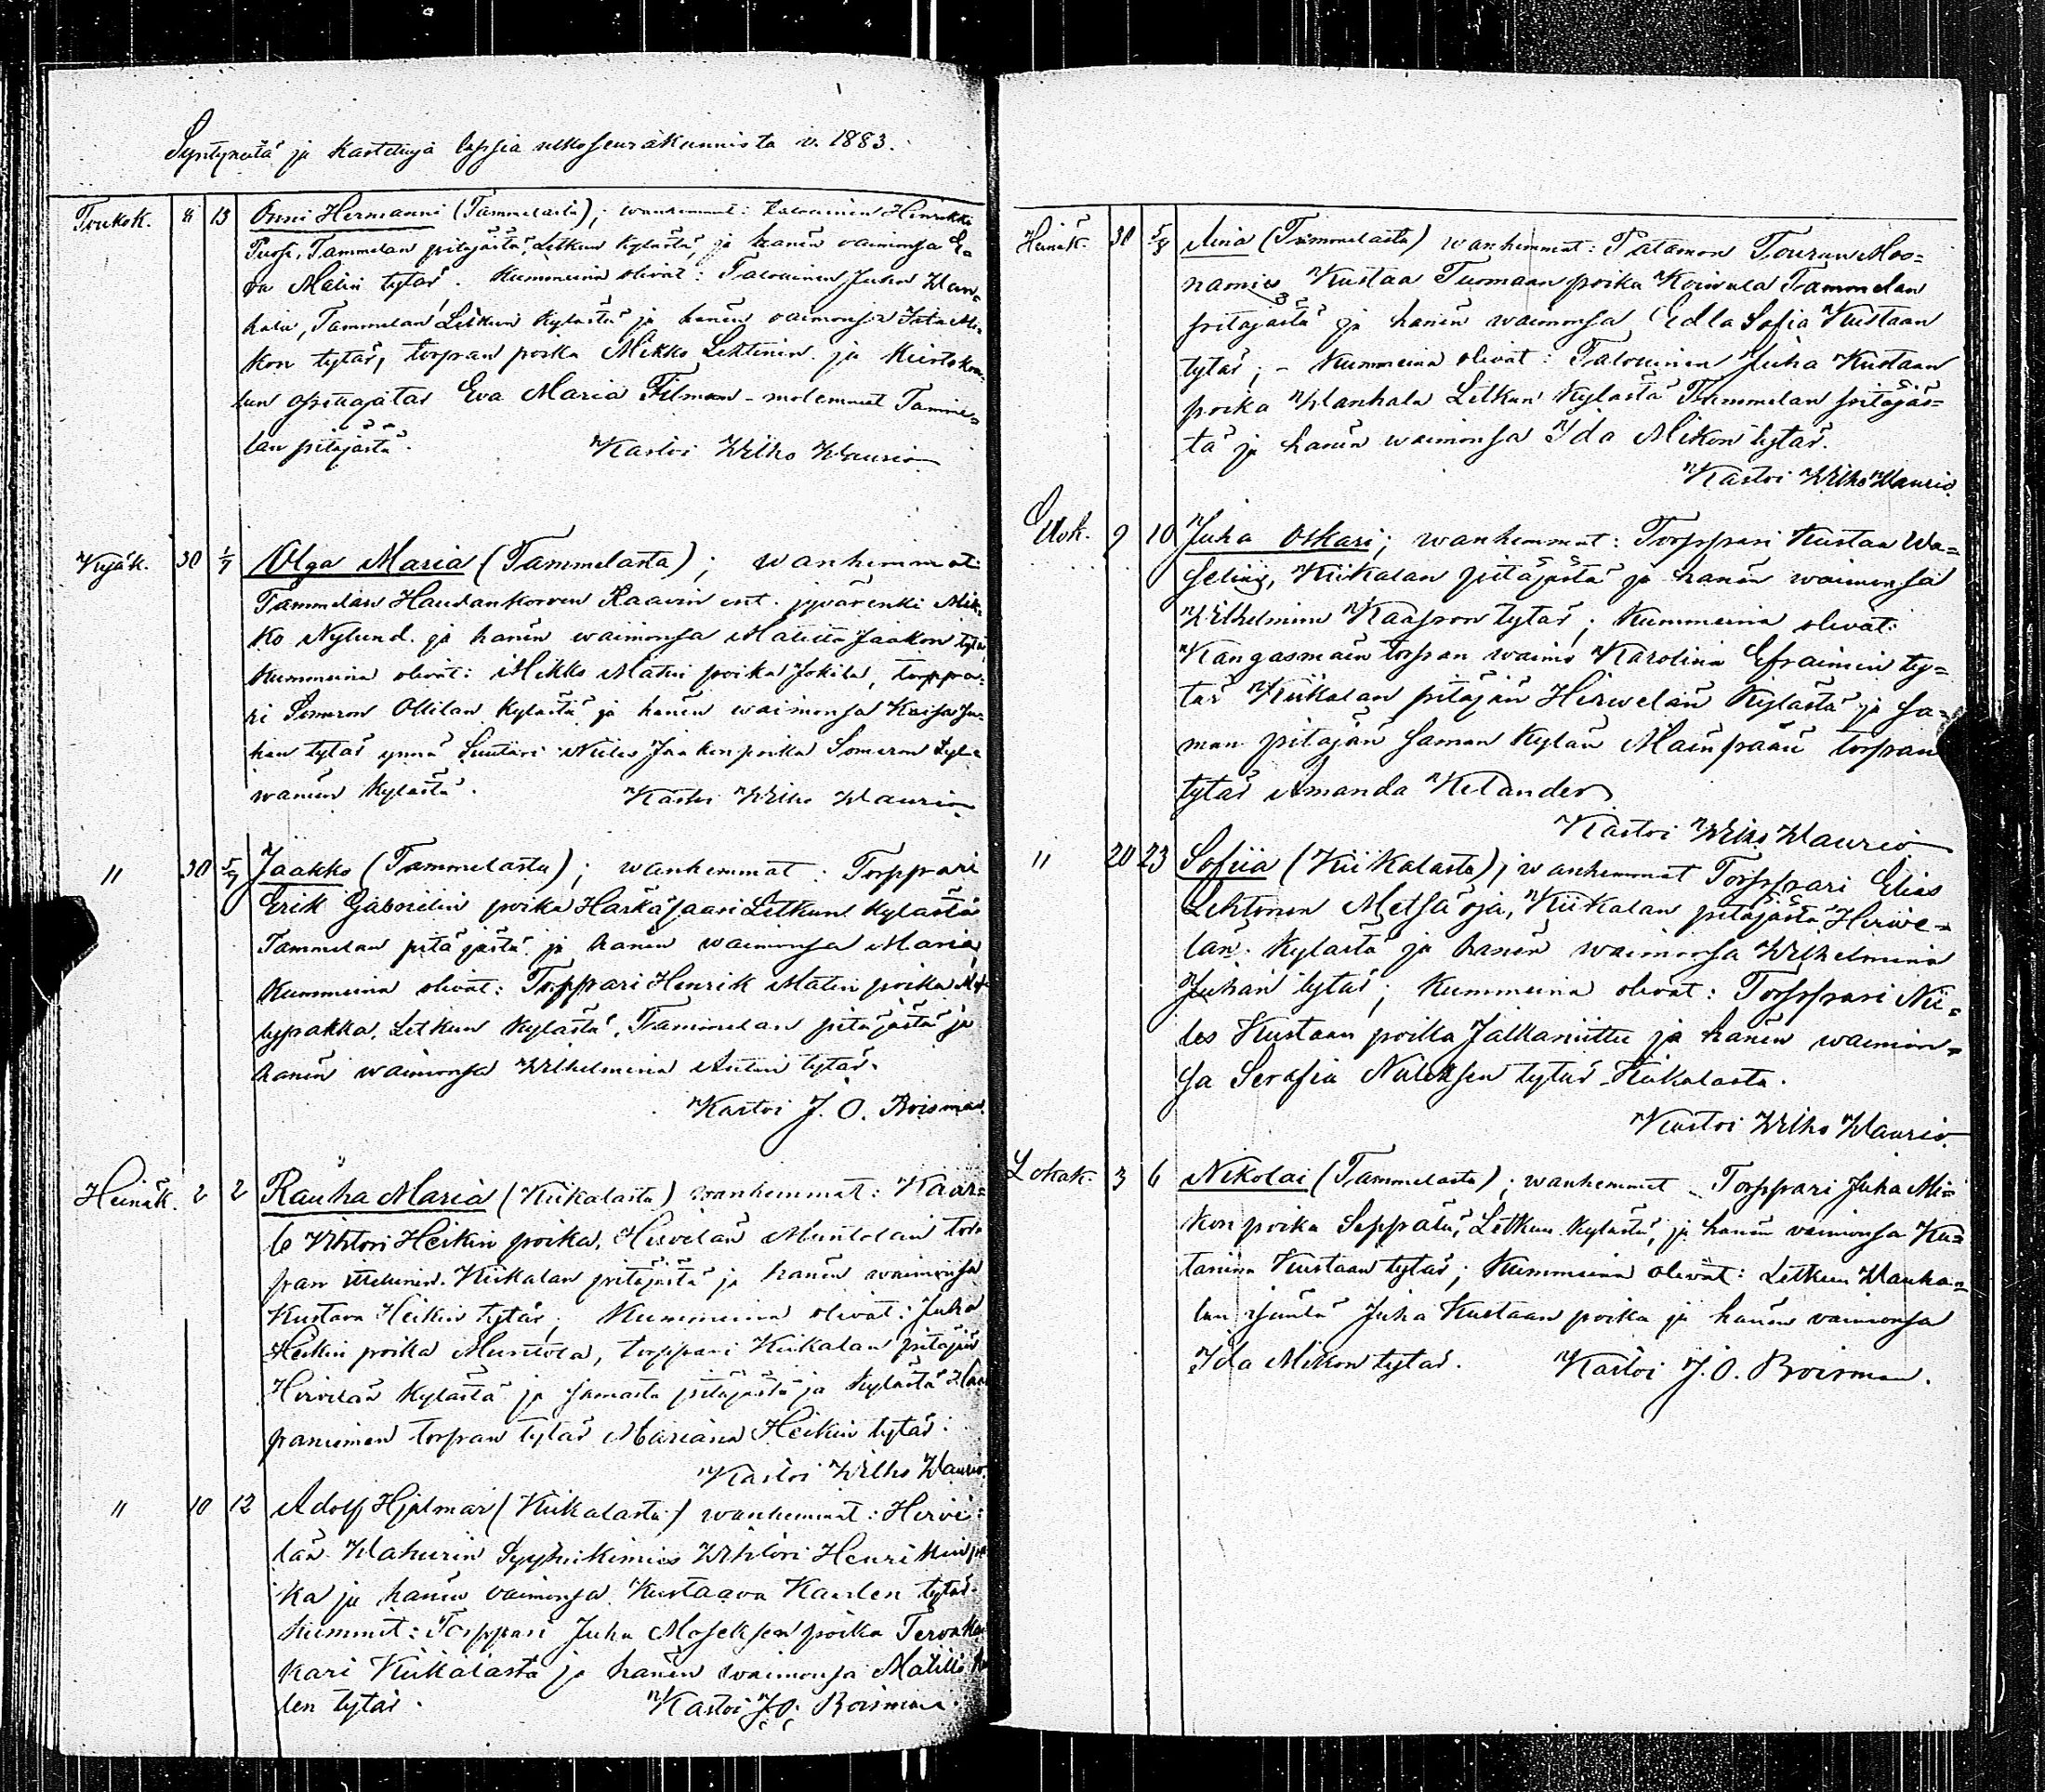 Syntyneitä ja kastetuja lapsia ulkoseurakunnista v. 1883.
Toukok. 8 13 Onni Hermanni (Tammelasta); wanhemmat: talouinen Henrikki
Tammelan pitäjästä, Letkun kylästä, ja hänen vaimonsa E-
va Matin tytär. Kummeina olivat: Talouinen Juha Wan-
hala, Tammelan Letkun kylästä ja hänen vaimonsa Ida Mi-
kon tytär, torpan poika Mikko Lehtinin ja kiertokou-
lun opettajatar Eva Maria Filman - molemmat Tamme-
lan pitäjästä. Kastoi Wilho Waurio
Kesäk. 30 1/7 Olga Maria (Tammelasta); wanhemmat:
Tammelan Haudankorven Raavin ent. jyvärenki Mik-
ko Nylund ja hänen waimonsa Matilta Jaakon tytär,
Kummeina olivat: Mikko Matin poika Jokila, torppa-
ri Someron Ollilan kylästä ja hänen waimonsa Kaisa Ju-
han tytär ynnä Suutari Niilo Jaakon poika Someron Syl-
wänän kylästä. Kastoi Wilho Waurio
" 30 5/7 Jaakko (Tammelasta); wanhemmat: Torppari
Erik Gabrielin poika Härkäsaari Letkun kylästä
Tammelan pitäjästä ja hänen waimonsa Maria,
Kummeina olivat: Torppari Henrik Matin poika
Letkun kylästä, Tammelan pitäjästä ja
hänen waimonsa Wilhelmina Antin tytär.
Kastoi J. O. Roisman.
Heinäk. 2 2 Rauha Maria (Kiikalasta) wanhemmat: Kaar-
lo Vihtori Heikin poika, Hirvelän Muntolan tor-
pan Kiikalan pitäjästä ja hänen waimonsa
Kustava Heikin tytär, Kummeina olivat: Juha
Heikin poika Muntola, torppari Kiikalan pitäjän
Hirvelän kylästä ja samasta pitäjästä ja kylästä
paniemen torpan tytär Mariana Heikin tytär.
Kastoi Wilho Waurio.
" 10 12 Adolf Hjalmar (Kiikalasta) wanhemmat: Hirve-
län Wahurin Syytinkimies Wihtori Henrikin poi-
ka ja hänen vaimonsa Kustaava Kaarlen tytär.
Kummit: Torppari Juha Moseksen poika Tervakal-
kari Kiikalasta ja hänen waimonsa Matilta
len tytär. Kastoi J. O. Roisman.
Heinäk. 30 5/8 Aina (Tammelasta) wanhemmat: Patamon Tourun Moo-
namies Kustaa Tuomaan poika Koivula Tammelan
pitäjästä ja hänen waimonsa Edla Sofia Kustaan
tytär; - Kummeina olivat: Talouinen Juha Kustaan
poika Wanhala Letkun kylästä Tammelan pitäjäs-
tä ja hänen waimonsa Ida Mikon tytär.
Kastoi Wilho Waurio.
Elok. 9 10 Juha Oskari; wanhemmat: Torppari Kustaa Wa-
selius, Kiikalan pitäjästä ja hänen waimonsa
Wilhelmina Kaapron tytär; Kummeina olivat:
Kangasmäen torpan waimo Karolina Efraimin ty-
tär Kiikalan pitäjän Hirwelän kylästä ja sa-
man pitäjän saman kylän Mäenpään torpan
tytär Amanda Kelander
Kastoi Wilho Waurio
" 20 23 Sofiia (Kiikalasta); wanhemmat Torppari Elias
Lehtonen Metsäoja, Kiikalan pitäjästä Hirwe-
län kylästä ja hänen waimonsa Wilhelmina
Juhan tytär; Kummeina olivat: Torppari Nii-
les Kustaan poika Jalkaniittu ja hänen waimon-
sa Serafia Niileksen tytär Kiikalasta.
Kastoi Wilho Waurio.
Lokak. 3 6 Nikolai (Tammelasta); wanhemmat Torppari Juha Mi-
kon poika Seppälä, Letkun kylästä, ja hänen vaimonsa Ka-
tariina Kustaan tytär; Kummeina olivat: Letkun Wanha-
lan isäntä Juha Kustaan poika ja hänen vaimonsa
Ida Mikon tytär. Kastoi J. O. Roisman.